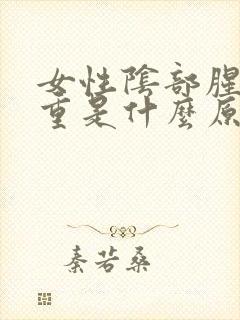 女性陰部腥
重是什麼原
秦若桑